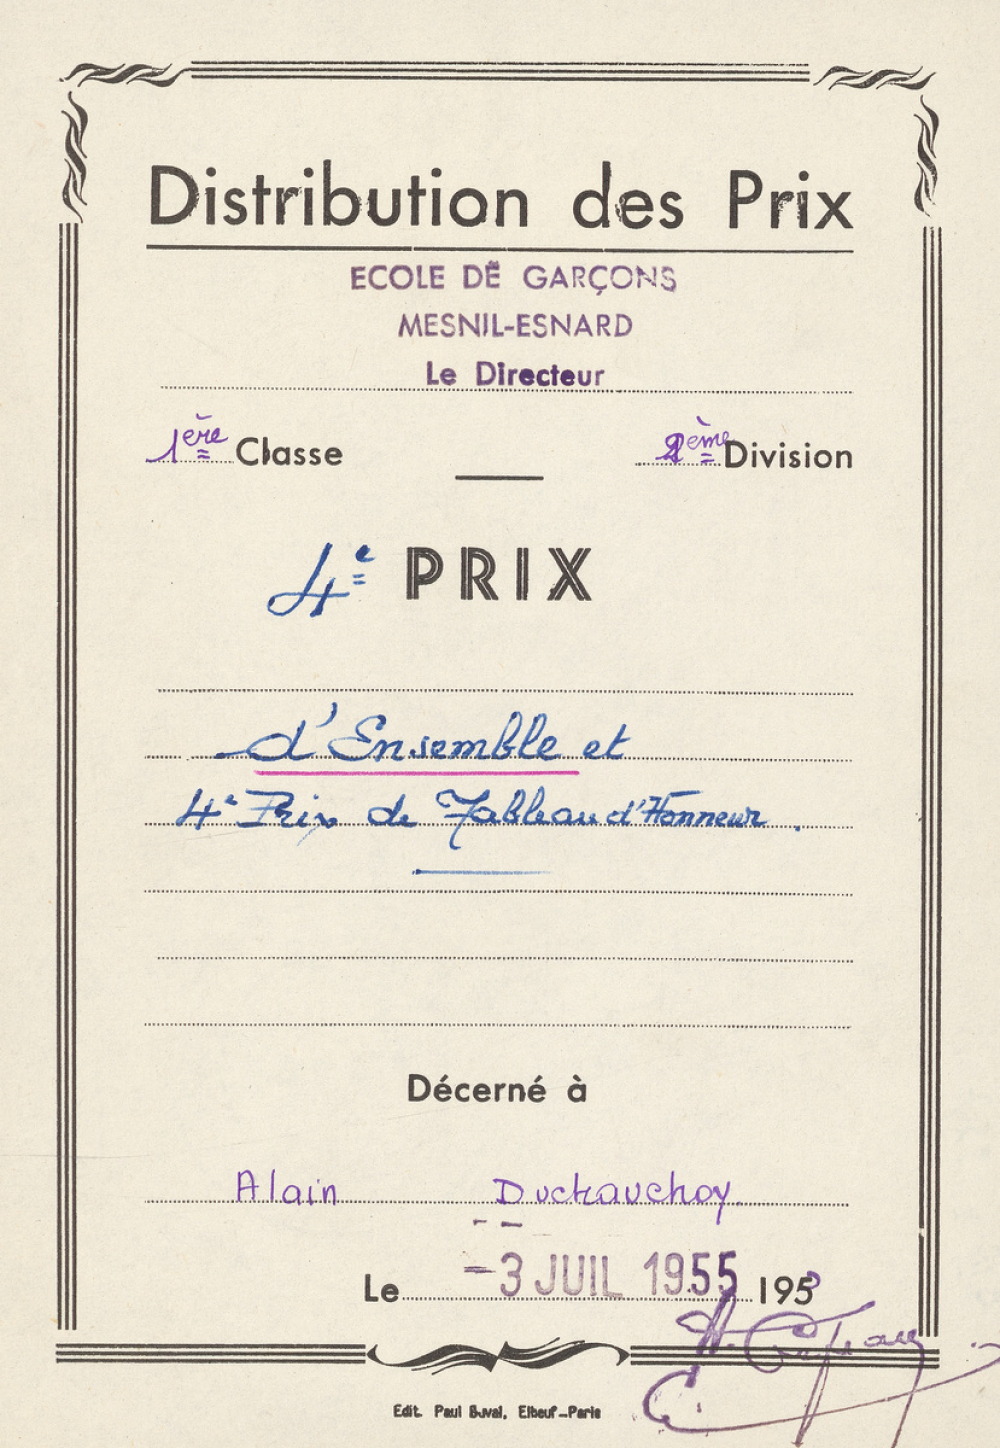 Distribution des Prix
ECOLE DE GARÇONS
MESNIL-ESNARD
Le Directeur
1ère Classe 2ème Division
4e PRIX
d'Ensemble et
4e Prix de Tableau d'Honneur.
Décerné à
Alain Duchauchoy
Le -3 JUIL 1955 195
Edit. Paul Duval, Elbeuf-Paris